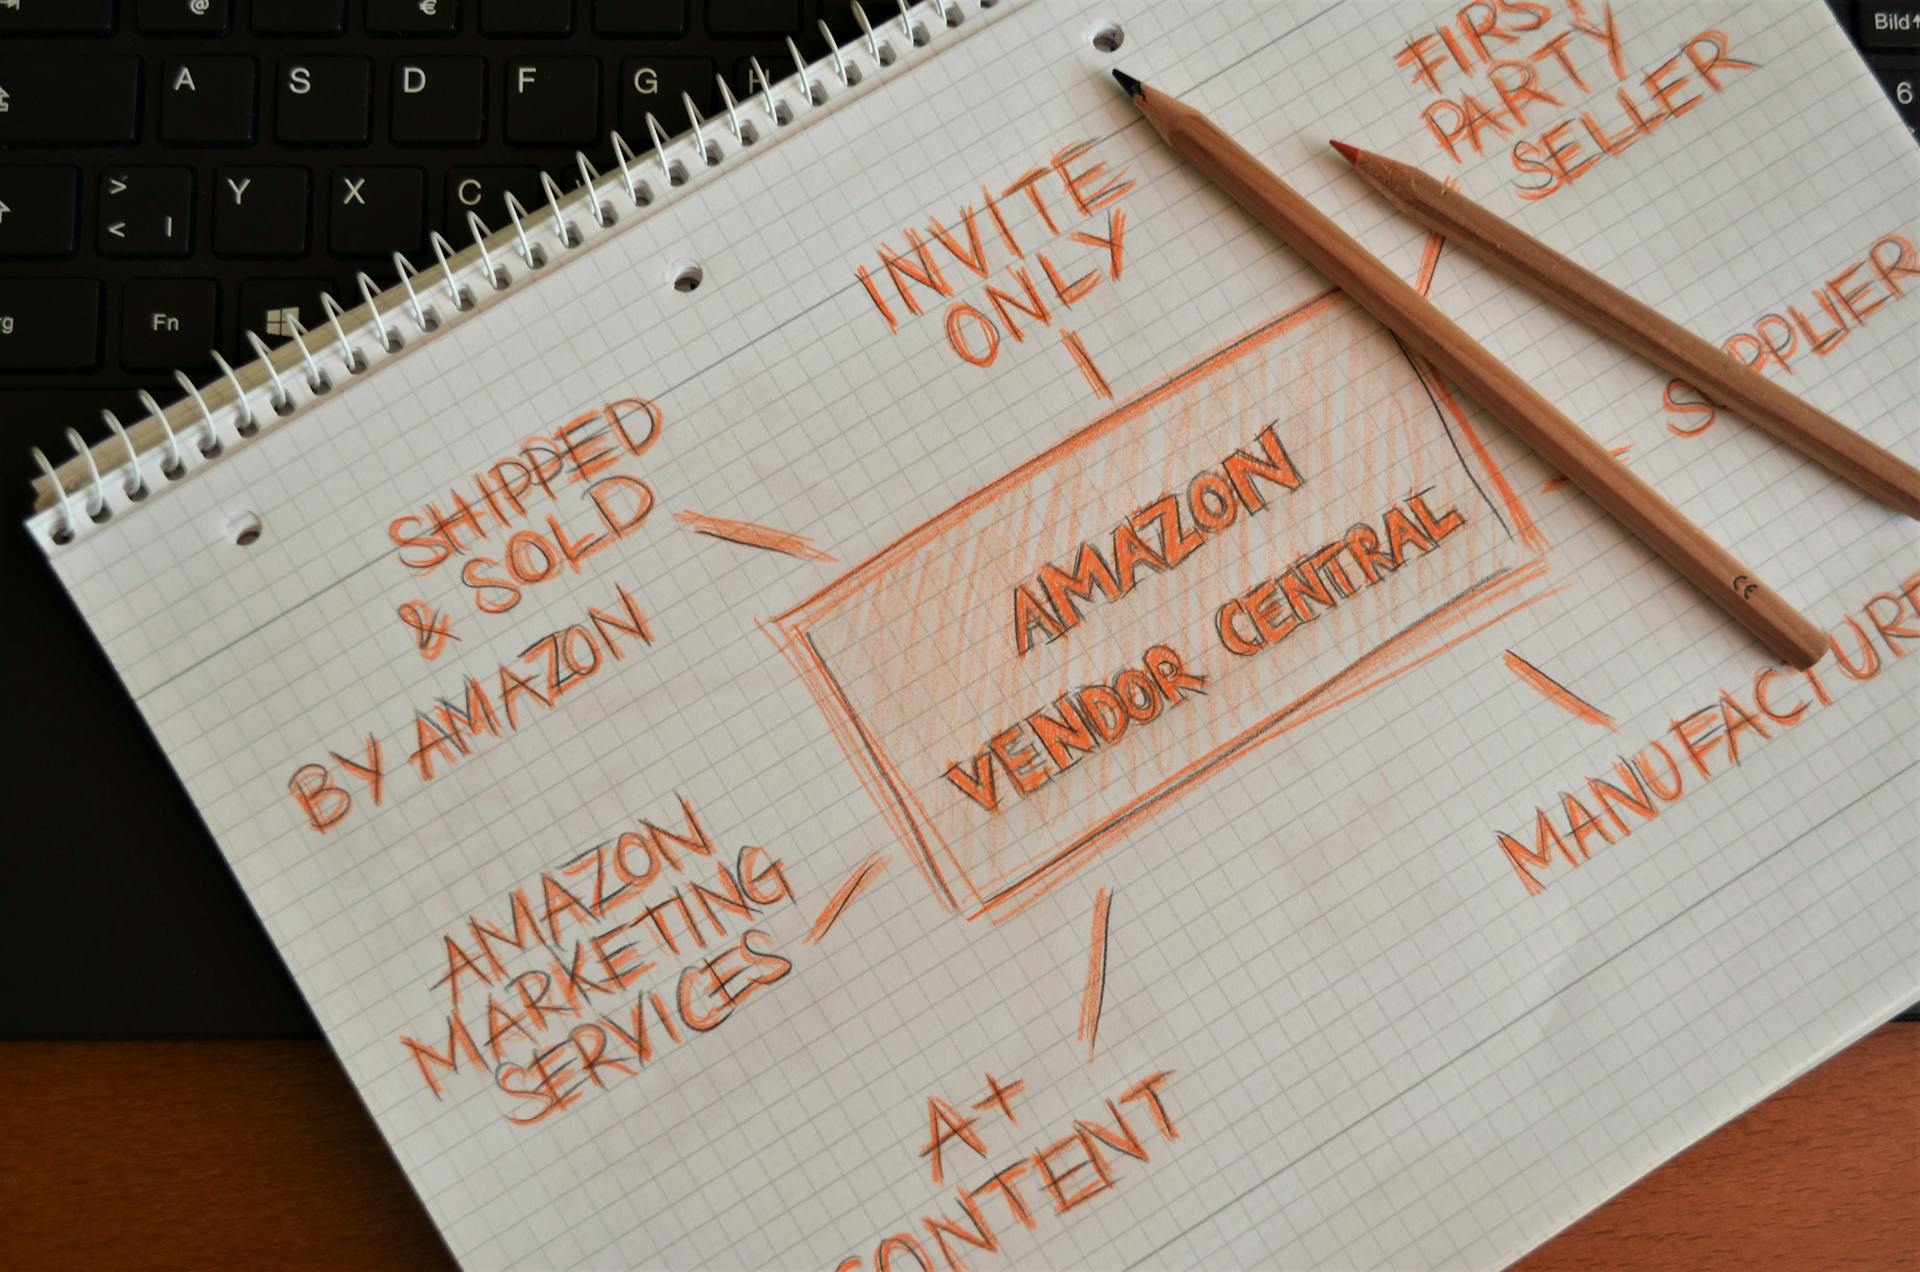 @
€
A
S
D
F
G
H
>
<
|
Y
X
C
Fn
Bild
6
INVITE
ONLY
FIRST
PARTY
SELLER
SHIPPED
& SOLD
BY AMAZON
AMAZON
VENDOR CENTRAL
SUPPLIER
MANUFACTURE
AMAZON
MARKETING
SERVICES
A+
CONTENT